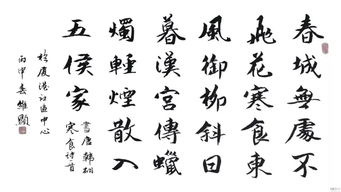 春城無處不
飛花寒食東
風御柳斜日
暮漢宮傳蠟
燭輕煙散入
五侯家
書唐韓翃
寒食詩首
於廈港社區中心
丙申春